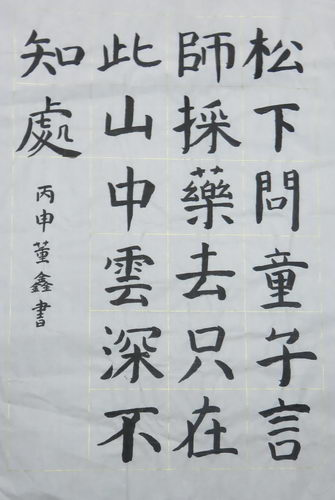 松下問童子言
師採藥去只在
此山中雲深不
知處
丙申董鑫書